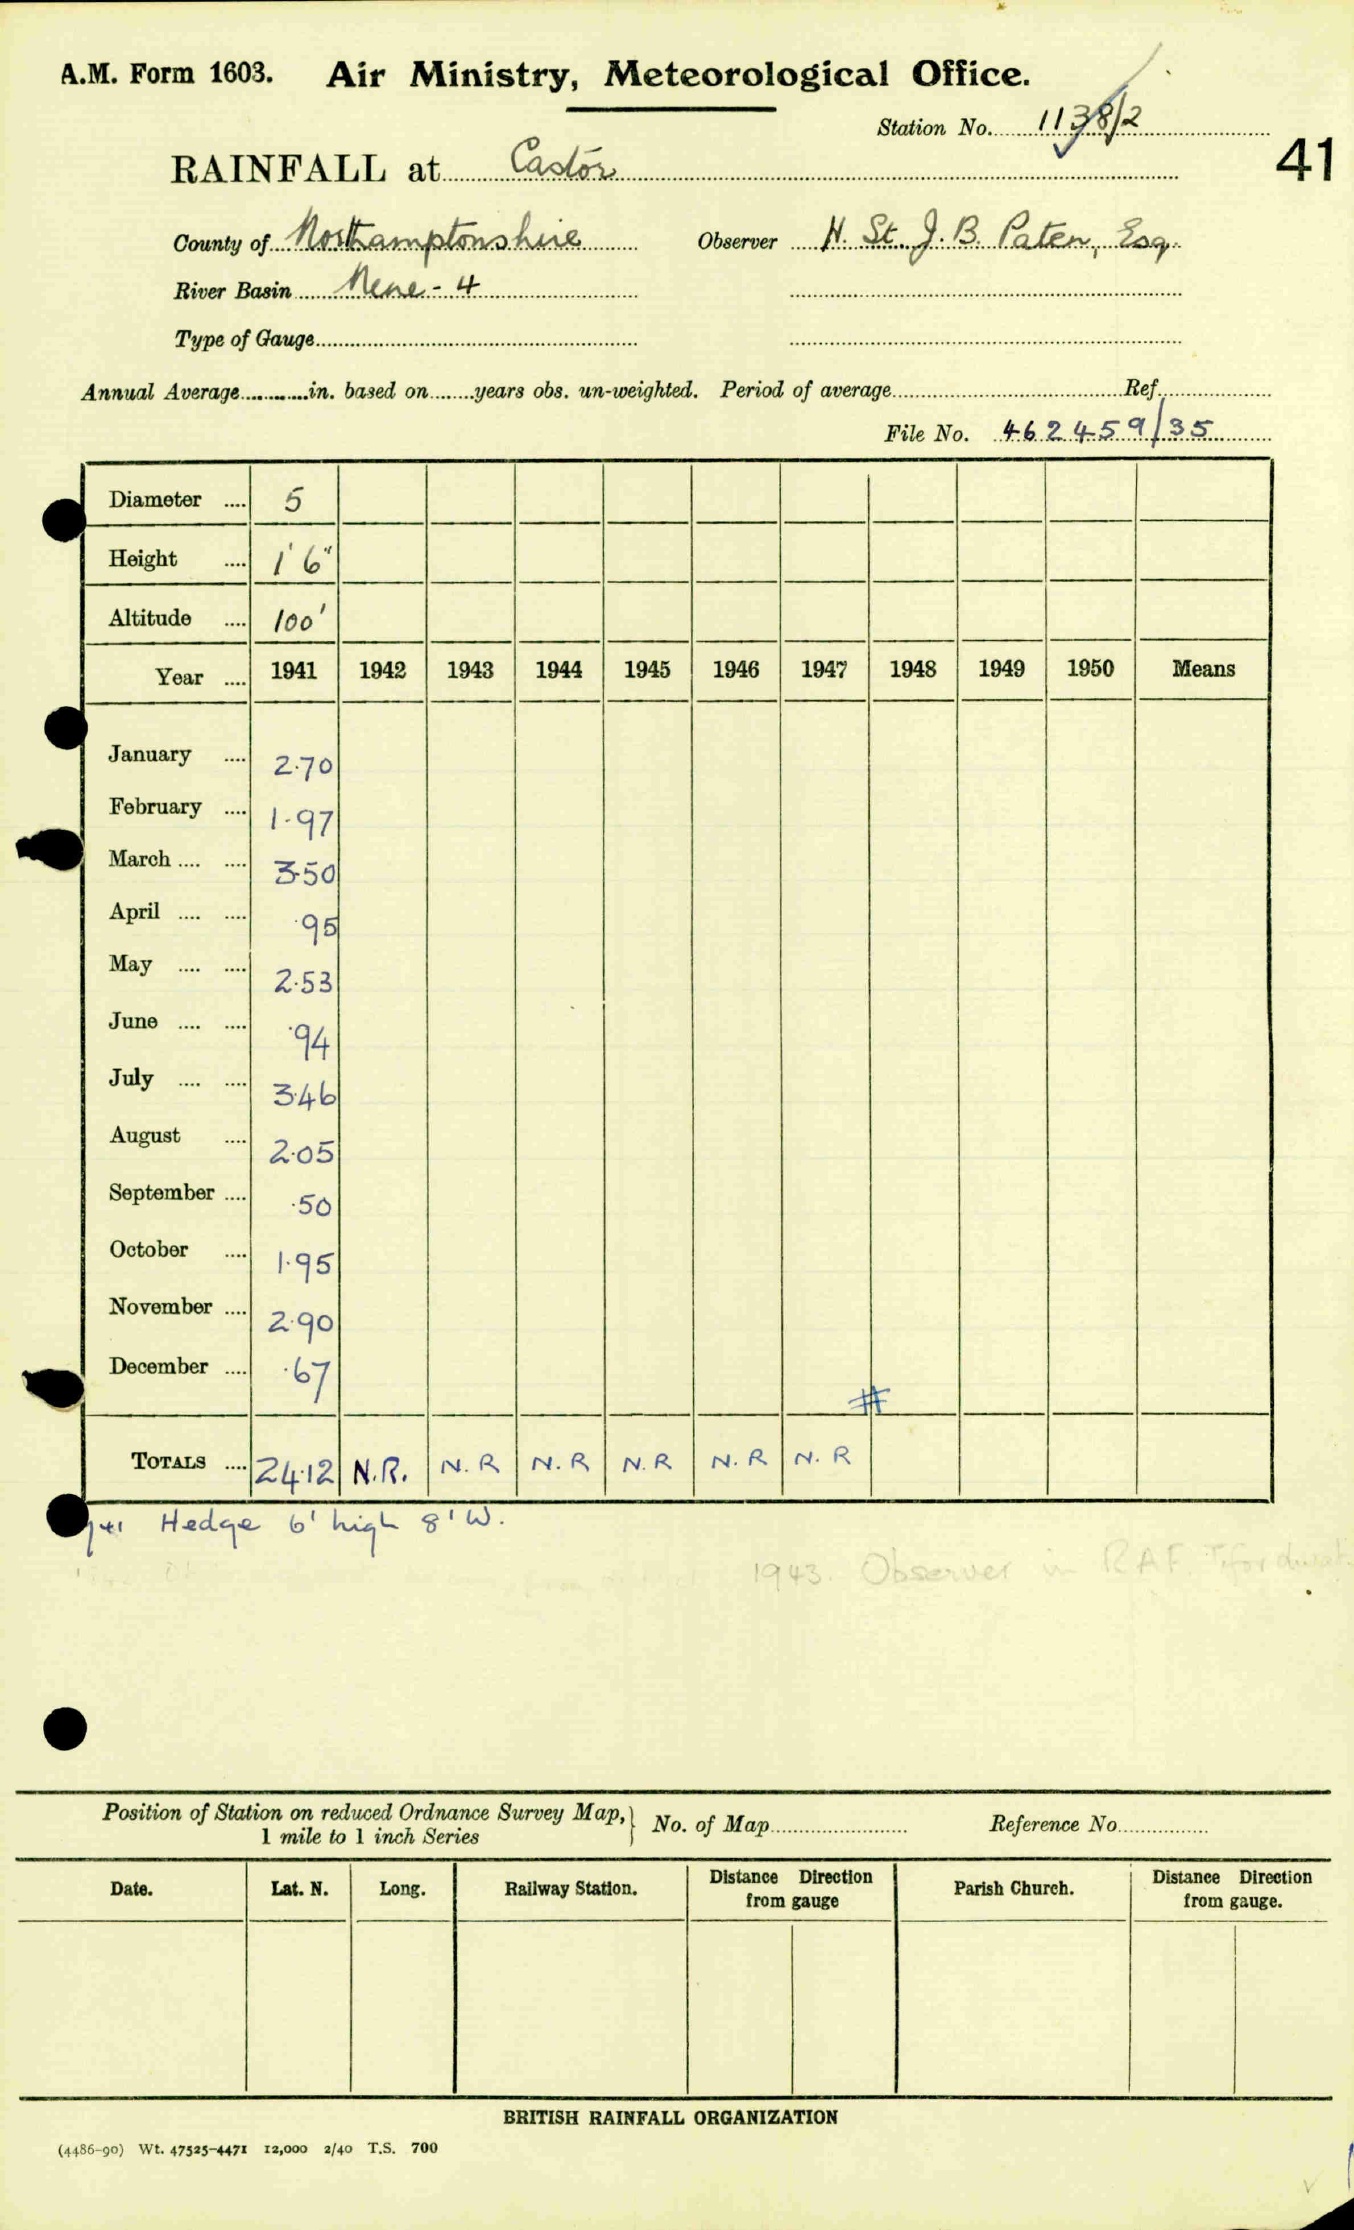 A.M. Form 1603. Air Ministry, Meteorological Office.
Station No. 1138/2
41
RAINFALL at Castor
County of Northamptonshire Observer H. St. J. B. Paten, Esq.
River Basin Nene - 4
Type of Gauge
Annual Average in. based on years obs. un-weighted. Period of average Ref.
File No. 462459/35
Diameter .... 5
Height .... 1' 6"
Altitude .... 100'
Year .... 1941 1942 1943 1944 1945 1946 1947 1948 1949 1950 Means
January .... 2.70
February .... 1.97
March .... .... 3.50
April .... .... .95
May .... .... 2.53
June .... .... .94
July .... .... 3.46
August .... 2.05
September .... .50
October .... 1.95
November .... 2.90
December .... .67
#
TOTALS .... 24.12 N.R. N.R N.R N.R N.R N.R
1941 Hedge 6' high 8' W.
1943. Observer in RAF.
Position of Station on reduced Ordnance Survey Map, } No. of Map Reference No.
1 mile to 1 inch Series
Date. Lat. N. Long. Railway Station. Distance Direction from gauge Parish Church. Distance Direction from gauge.
BRITISH RAINFALL ORGANIZATION
(4486-90) Wt. 47525-4471 12,000 2/40 T.S. 700